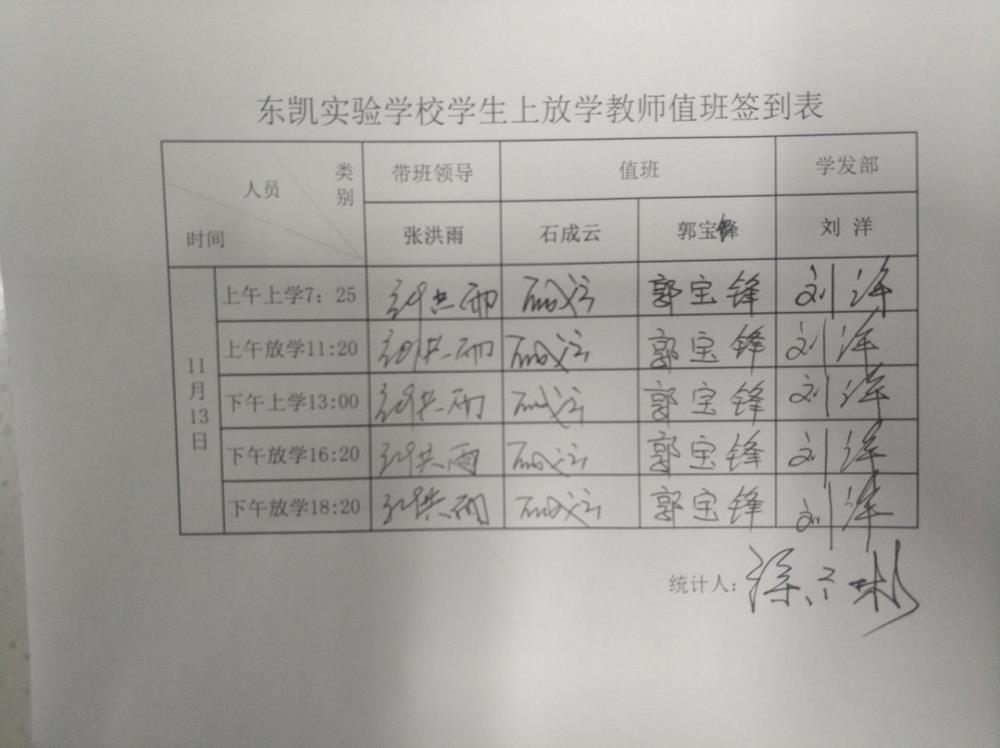 东凯实验学校学生上放学教师值班签到表
人员 类别 带班领导 值班 学发部
时间 张洪雨 石成云 郭宝锋 刘洋
11月13日
上午上学7：25 张洪雨 石成云 郭宝锋 刘洋
上午放学11:20 张洪雨 石成云 郭宝锋 刘洋
下午上学13:00 张洪雨 石成云 郭宝锋 刘洋
下午放学16:20 张洪雨 石成云 郭宝锋 刘洋
下午放学18:20 张洪雨 石成云 郭宝锋 刘洋
统计人：